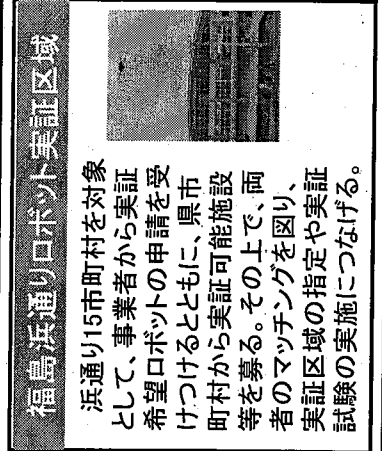 福島浜通りロボット実証区域
浜通り15市町村を対象
として、事業者から実証
希望ロボットの申請を受
けつけるとともに、県市
町村から実証可能施設
等を募る。その上で、両
者のマッチングを図り、
実証区域の指定や実証
試験の実施につなげる。